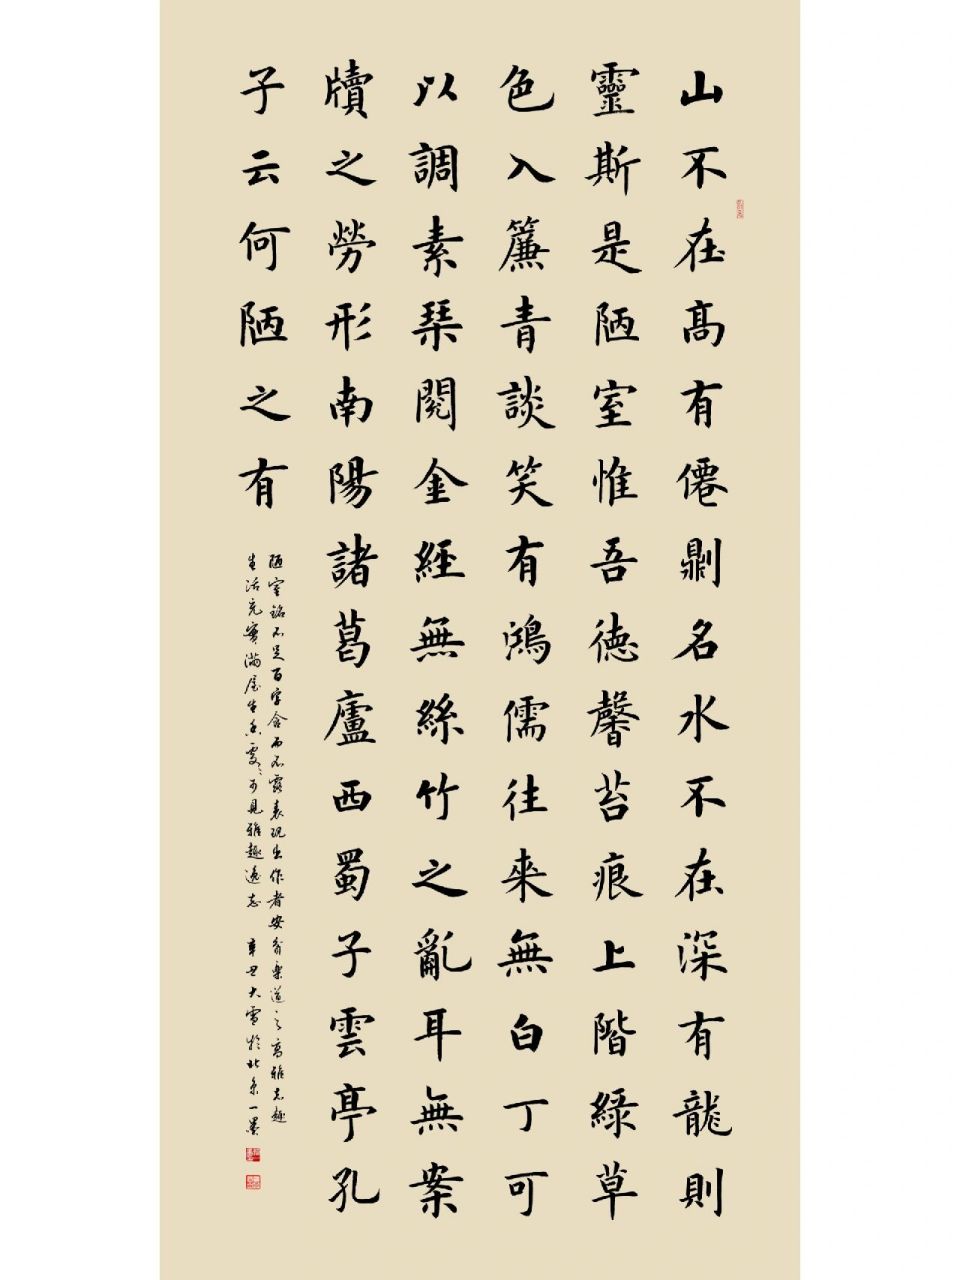 山不在高有僊鼎名水不在深有龍則
靈斯是陋室惟吾德馨苔痕上階綠草
色入簾青談笑有鴻儒往來無白丁可
以調素琴閱金經無絲竹之亂耳無案
牘之勞形南陽諸葛廬西蜀子雲亭孔
子云何陋之有
陋室銘不足百字含而不露表現出作者安貧樂道之高雅志趣
生活充實滿屋生香處處可見雅趣遠志 辛丑大雪於北京一墨